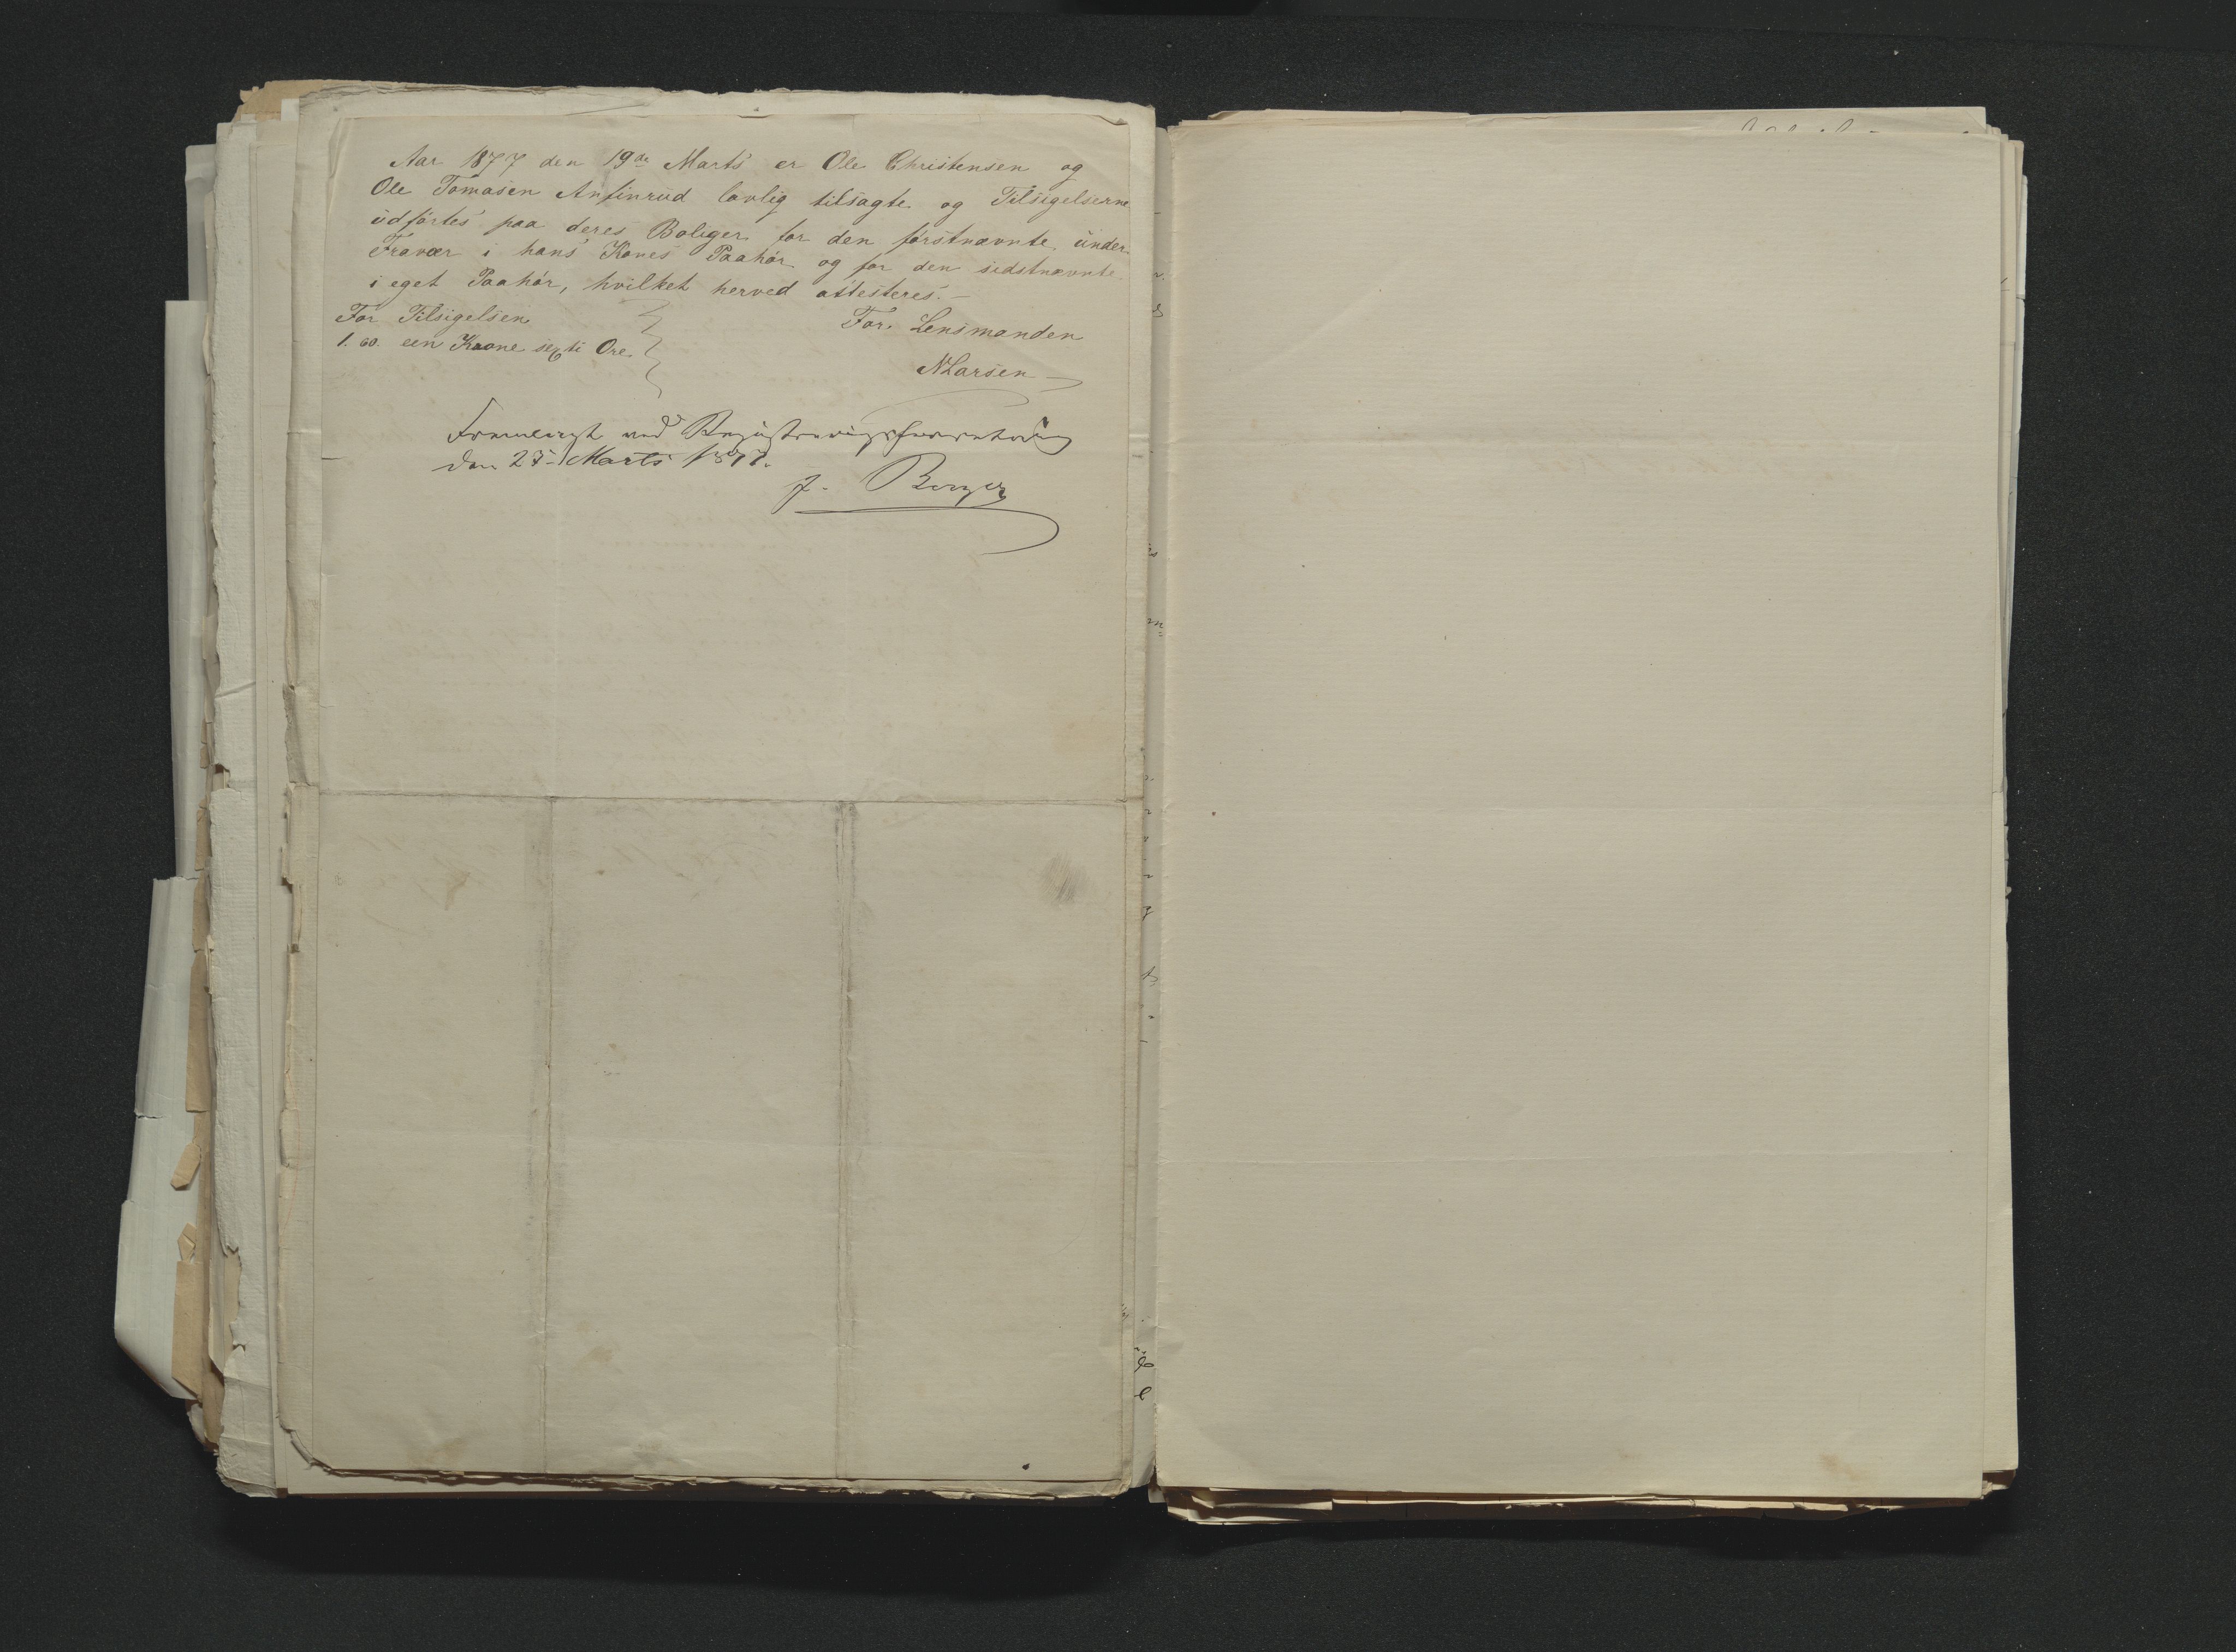 Aar 1877 den 19de Marts er Ole Christensen og
Ole Tomasen Anfinrud lovlig tilsagte og Tilsigelserne
udførtes paa deres Boliger for den førstnævnte under
Fravær i hans Kones Paahør og for den sidstnævnte
i eget Paahør, hvilket herved attesteres. —
For Tilsigelsen
1. 60. een Krone sexti Øre
For Lensmanden
NLarsen
Fremlagt ved Registreringsforretning
den 27 Marts 1877.
J.